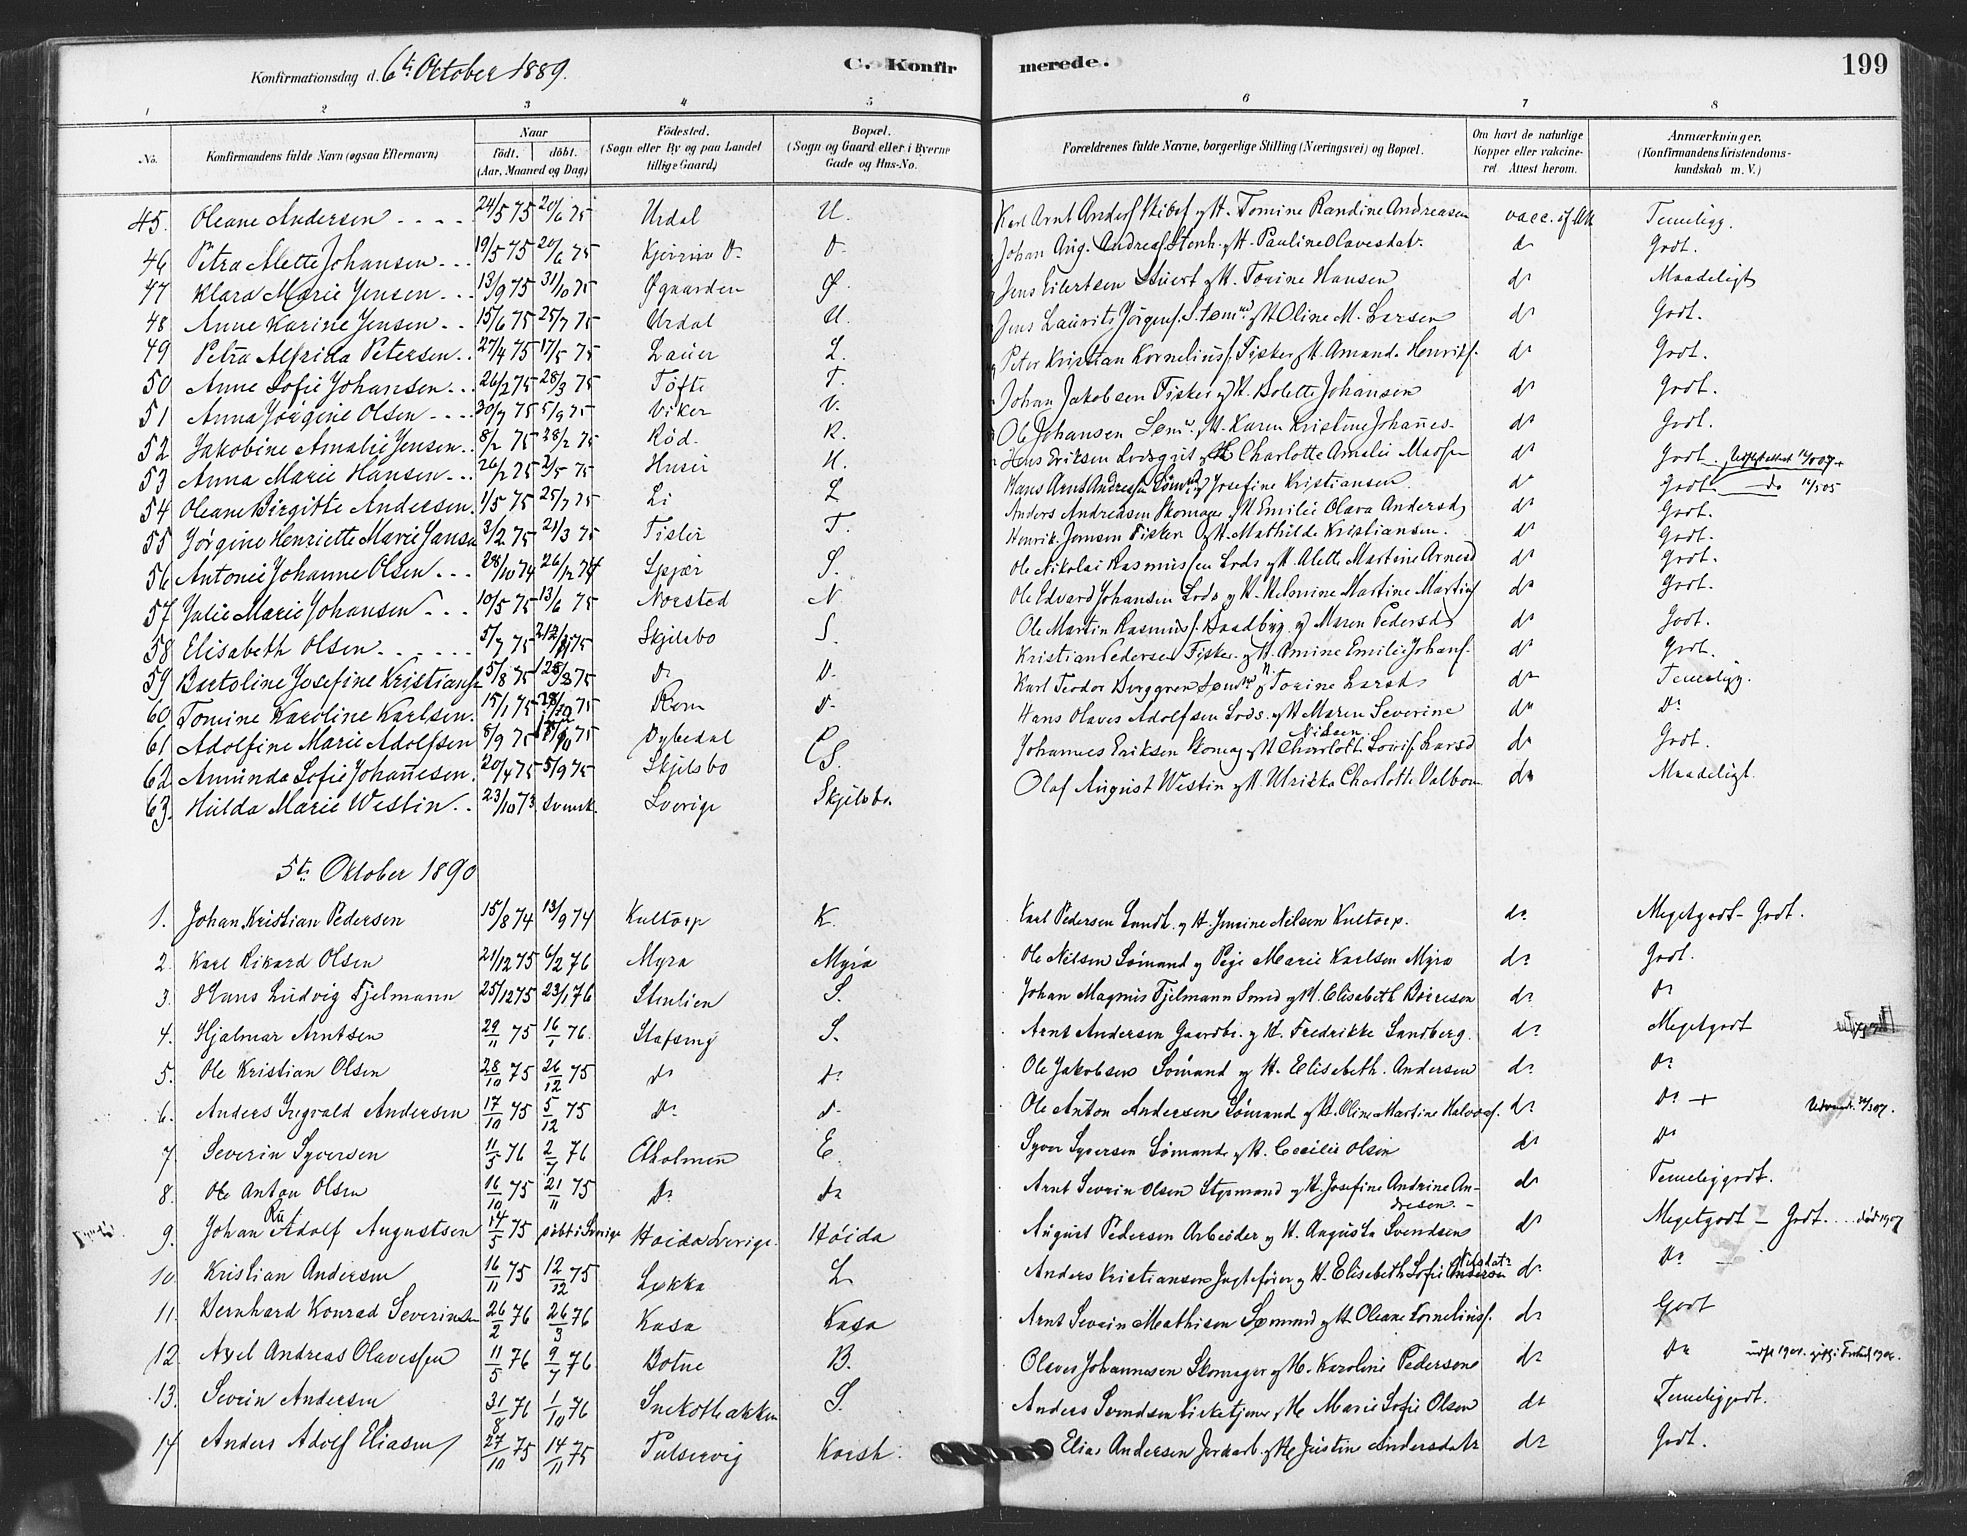 Konfirmationsdag d. 6te Oktober 1889. C. Konfirmerede. 199
1 2 3 4 5 6 7 8
No. Konfirmandens fulde Navn (ogsaa Efternavn) Naar født. døbt. (Aar, Maaned og Dag) Fødested. (Sogn eller By og paa Landet tillige Gaard) Bopæl. (Sogn og Gaard eller i Byerne Gade og Hus-No. Forældrenes fulde Navne, borgerlige Stilling (Næringsvei) og Bopæl. Om havt de naturlige Kopper eller vakcineret. Attest herom. Anmærkninger. (Konfirmandens Kristendomskundskab m. V.)
45. Oleane Andersen 24/5 75 20/6 75 Urdal U. Karl Arnt Anders. H. Tomine Randine Andreasen vacc. if. Att. Temeligg.
46 Petra Alette Johansen 19/5 75 20/6 75 D. Johan Aug. Andreas. Stenh. og H. Pauline Olavesdatr. do Godt.
47 Klara Marie Jensen 13/9 75 31/10 75 Øgaarden Ø. Jens Eilertsen og H. Torine Hansen do Maadeligt
48 Anne Karine Jensen 15/6 75 25/7 75 Urdal U. Jens Laurits Jørgens. Sømd og H. Oline M. Larsen do Godt.
49 Petra Alfrida Petersen 27/4 75 17/5 75 Lauer L. Peter Kristian Kornelius. Fisker og H. Amanda Henriks. do Godt.
50 Anne Sofie Johansen 26/2 75 28/3 75 Tofte T. Johan Jakobsen Fisker og H. Bolette Johansen do Godt.
51 Anna Jørgine Olsen 30/7 75 5/9 75 Viker V. Ole Johansen Søm. og H. Karen Kristine Johannes. do Godt.
52 Jakobine Amalie Jensen 8/2 75 28/2 75 Rød. R. Eriksen og H. Charlotte Amalie Mads. do Godt.
53 Anna Marie Hansen 26/2 75 2/5 75 Huser H. Hans Arnt Andressen Sømd og Josefine Kristiansen do Godt. do
54 Oleane Birgitte Andersen 1/5 75 25/7 75 Li L Anders Andreasen Skomager og H. Emilie Olava Andersd. do Godt.
55 Jørgine Henriette Marie Jansen 3/2 75 21/3 75 Tisler T. Henrik Jensen Fisker og H. Mathilde Kristiansen. do Godt.
56 Antonie Johanne Olsen 28/10 74 26/12 74 Spjær S. Ole Nikolai Rasmussen Lods og H. Alette Martine Arnesd do Godt.
57 Julie Marie Johansen 10/5 75 13/6 75 Norsted N. Ole Edvard Johansen Lods og H. Helmine Martine Martins do Godt.
58 Elisabeth Olsen 5/7 75 Skjelsbo S. Ole Martin Rasmus. Baadbyg. og Maren Pedersd do Godt.
59 Bertoline Josefine Kristians. 5/8 75 Do D. Kristian Pedersen Fisker og H. Amine Emilie Johans. do Godt.
60 Tomine Karoline Karlsen. 15/1 75 Rom D. Karl Teodor Berggren Sømd og H. Torine Larsd do Temeligg.
61 Adolfine Marie Adolfsen 5/9 75 Dybedal Hans Olaves Adolfsen Lods og H. Maren Severine Nilsen do Do
62 Amunda Sofie Johannesen. 20/4 75 5/9 75 Skjelsbo S. Johannes Eriksen Skomag. og H. Charlott. Lovis. Larsd do Godt.
63. Hulda Marie Westin 23/10 73 Svensk. Sverige Skjelsbo. Olaf August Westin og H. Ulrikka Charlotte Valbom do Maadeligt.
5te Oktober 1890
1. Johan Kristian Pedersen 15/8 74 13/9 74 Kultorp K. Karl Pedersen og H. Nilsen Kultorp. do Megetgodt - Godt.
2. Karl Rikard Olsen 21/12 75 6/2 76 Myra Myra Ole Nilsen Sømand og Pige Marie Karlsen Myra do Godt.
3. Hans Ludvig Fjelmann 25/12 75 23/1 76 Stenlien S. Johan Magnus Fjelmann Smed og H. Elisabeth Børresen do Do
4. Hjalmar Arntsen 29/11 75 16/1 76. Stafseng S. Arnt Andersen Gaardbr. og H. Fredrikke Sandberg. do Megetgodt
5. Ole Kristian Olsen 28/10 75 26/12 75 Do Do Ole Jakobsen Sømand og H. Elisebeth. Andersen do Do
6. Anders Ingvald Andersen 17/10 75 5/12 75 Do D. Ole Anton Andersen Sømand og H. Oline Martine Halvors. do Do +
7 Severin Syversen 11/5 76 2/7 76 Ekholmen E. Syver Syversen Sømand og H. Cecilie Olsen do Do
8. Ole Anton Olsen 16/10 75 21/11 75 Do Do Arnt Severin Olsen Styrmand og H. Josefine Andrine Andresen. do Temeliggodt.
9. Johan Adolf Augustsen 14/5 75 døbt i Sverige Høida Sverige. Høida August Pedersen Arbeider og H. Augusta Svendsen do Megetgodt - Godt.... død 1907
10. Kristian Andersen 16/11 75 12/12 75 Løkka L Anders Kristiansen Jagtfører og H. Elisebeth Sofie Nilsdatr do Do
11. Bernhard Konrad Severinsen 26/2 76 26/3 76 Kasa Kasa Arnt Severin Mathisen Sømand og H. Oleane Kornelius. do Godt
12. Axel Andreas Olavessen 11/5 76 9/7 76 Botne B. Olaves Johannesen Skomager og H. Karoline Pedersen do Do
13. Severin Andersen 31/8 76 1/10 76 Snekotbakken S. Anders Svendsen Kirketjener og H. Marie Sofie Olsen do Temeliggodt.
14 Anders Adolf Eliasen 27/10 75 14/11 75 Pulservig Korsh. Elias Andersen Jordarb. og H. Justine Andersdatr do Godt.